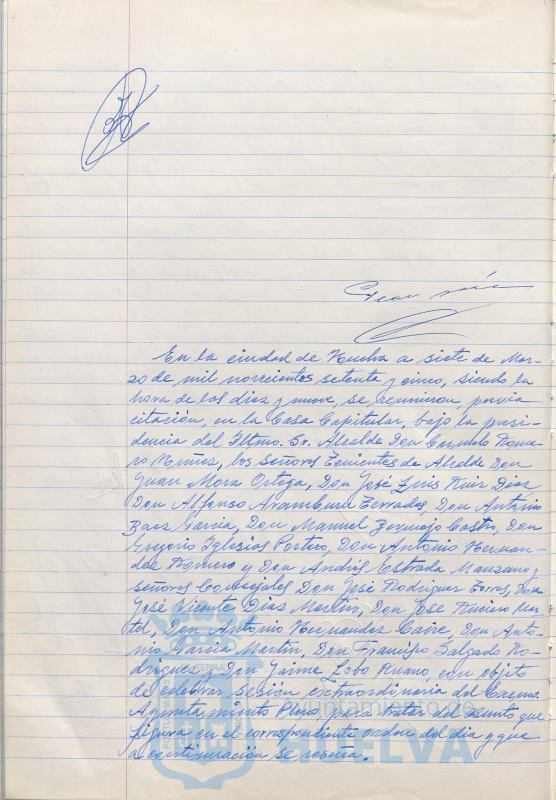 En la ciudad de Huelva a siete de Mar-
zo de mil novecientos setenta y cinco, siendo la
hora de las diez y nueve, se reunieron, previa
citación, en la Casa Capitular, bajo la presi-
dencia del Iltmo. Sr. Alcalde Don Carmelo Rome-
ro Núñez, los señores Tenientes de Alcalde Don
Juan Mora Ortega, Don José Luis Ruiz Díaz
Don Alfonso Aramburu Terrades, Don Antonio
Baez Garcia, Don Manuel Bermejo Castro, Don
Gregorio Iglesias Portero, Don Antonio Hernan-
dez Romero y Don Andrés Estrada Manzano y
señores Concejales Don José Rodriguez Torres, Don
José Vicente Dias Martin, Don José Ruciro Mar-
tel, Don Antonio Hernandez Caire, Don Anto-
nio Garcia Martin, Don Francisco Salgado Ro-
driguez y Don Jaime Lobo Ruano, con objeto
de celebrar sesión extraordinaria del Excmo.
Ayuntamiento Pleno, para tratar del asunto que
figura en el correspondiente orden del dia y que
a continuación se reseña.
Ayuntamiento de
HUELVA